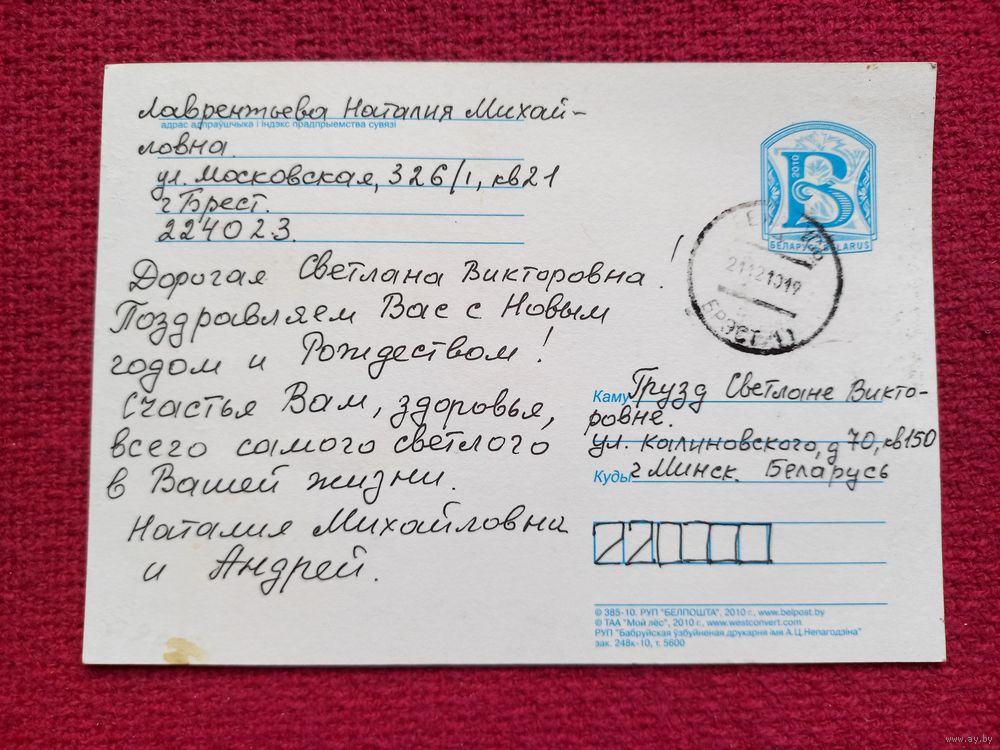 Лаврентьева Наталия Михай-
адрас адпраўшчыка і індэкс прадпрыемства сувязі
ловна.
ул. Московская, 326/1, кв21
г Брест.
224023.
Дорогая Светлана Викторовна!
Поздравляем Вас с Новым
годом и Рождеством!
Счастья Вам, здоровья,
всего самого светлого
в Вашей жизни.
Наталия Михайловна
и Андрей.
2010
БЕЛАРУСЬ BELARUS
211210 19
БРЭСТ 11
Каму Грузд Светлане Викто-
ровне.
ул. Калиновского, д 70, кв150
Куды г Минск. Беларусь
220000
© 385-10. РУП "БЕЛПОШТА", 2010 г., www.belpost.by
© ТАА "Мой лёс", 2010 г., www.westconvert.com
РУП "Бабруйская ўзбуйненая друкарня імя А.Ц.Непагодзіна"
зак. 248к-10, т. 5600
www.ay.by